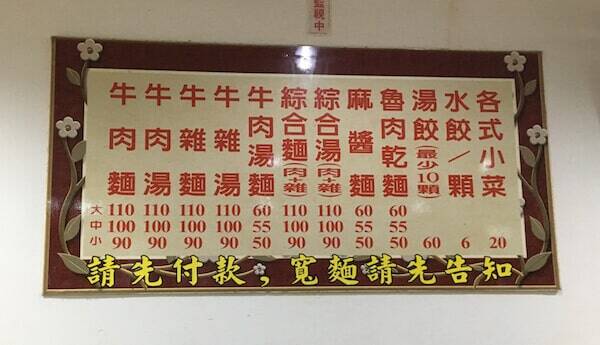 監視中
牛肉麵 牛肉湯 牛雜麵 牛雜湯 牛肉湯麵 綜合麵(肉+雜) 綜合湯(肉+雜) 麻醬麵 魯肉乾麵 湯餃(最少10顆) 水餃/顆 各式小菜
大 110 110 110 110 60 110 110 60 60
中 100 100 100 100 55 100 100 55 55
小 90 90 90 90 50 90 90 50 50 60 6 20
請先付款，寬麵請先告知